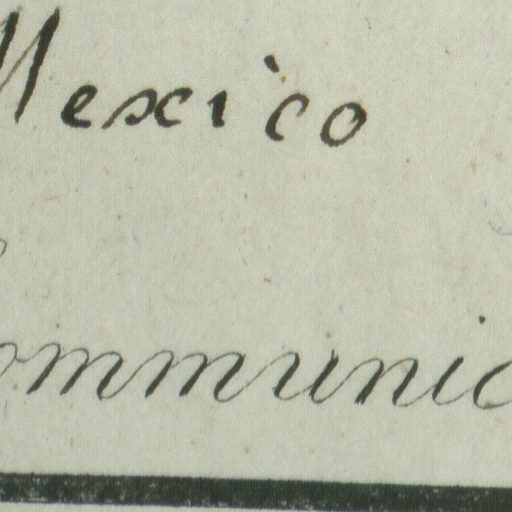 Mexico
ommunic